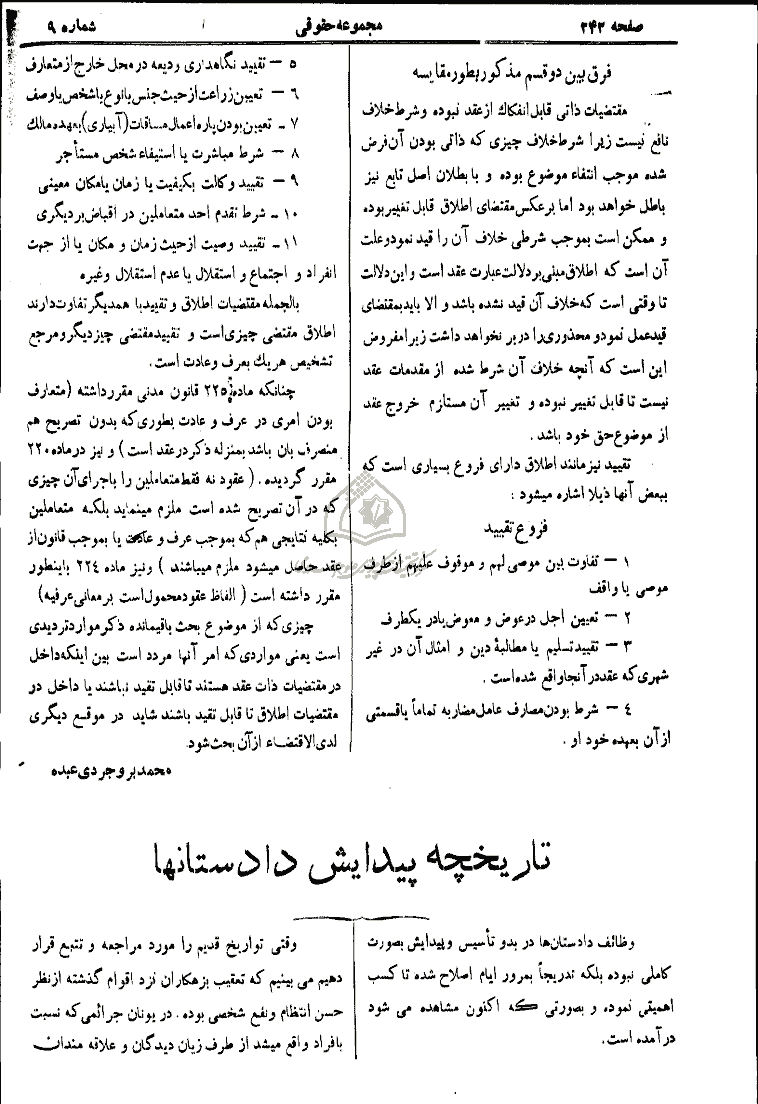 صفحه ۲۴۲
مجموعه حقوقی
شماره ۹
فرق بین دو قسم مذکور بطور مقایسه
مقتضیات ذاتی قابل انفکاك از عقد نبوده و شرط خلاف
نافع نیست زیرا شرط خلاف چیزی که ذاتی بودن آن فرض
شده موجب انتفاء موضوع بوده و با بطلان اصل تابع نیز
باطل خواهد بود اما برعکس مقتضای اطلاق قابل تغییر بوده
و ممکن است بموجب شرطی خلاف آن را قید نمود و علت
آن است که اطلاق مبنی بر دلالت عبارت عقد است و این دلالت
تا وقتی است که خلاف آن قید نشده باشد و الا باید بمقتضای
قید عمل نمود و محذوری را در بر نخواهد داشت زیرا مفروض
این است که آنچه خلاف آن شرط شده از مقدمات عقد
نیست تا قابل تغییر نبوده و تغییر آن مستلزم خروج عقد
از موضوع حق خود باشد .
تقیید نیز مانند اطلاق دارای فروع بسیاری است که
ببعض آنها ذیلا اشاره میشود :
فروع تقیید
۱ – تفاوت بین موصی لهم و موقوف علیهم از طرف
موصی یا واقف
۲ – تعیین اجل در عوض و معوض یا در یکطرف
۳ – تقیید تسلیم یا مطالبهٔ دین و امثال آن در غیر
شهری که عقد در آنجا واقع شده است .
٤ – شرط بودن مصارف عامل مضاربه تماماً یا قسمتی
از آن بعهده خود او .
۵ – تقیید نگاهداری ودیعه در محل خارج از متعارف
۶ – تعیین زراعت از حیث جنس یا نوع یا شخص یا وصف
۷ – تعیین بودن پاره اعمال مساقات (آبیاری) بعهده مالك
۸ – شرط مباشرت یا استیفاء شخص مستأجر
۹ – تقیید وکالت بکیفیت یا زمان یا مکان معینی
۱۰ – شرط تقدم احد متعاملین در اقباض بر دیگری
۱۱ – تقیید وصیت از حیث زمان و مکان یا از جهت
انفراد و اجتماع و استقلال یا عدم استقلال و غیره
بالجمله مقتضیات اطلاق و تقیید با همدیگر تفاوت دارند
اطلاق مقتضی چیزی است و تقیید مقتضی چیز دیگر و مرجع
تشخیص هر یك بعرف و عادت است .
چنانکه ماده ۲۲۵ قانون مدنی مقرر داشته (متعارف
بودن امری در عرف و عادت بطوری که بدون تصریح هم
منصرف بان باشد بمنزله ذکر در عقد است ) و نیز در ماده ۲۲۰
مقرر گردیده . ( عقود نه فقط متعاملین را باجرای آن چیزی
که در آن تصریح شده است ملزم مینماید بلکه متعاملین
بکلیه نتایجی هم که بموجب عرف و عادت یا بموجب قانون از
عقد حاصل میشود ملزم میباشند ) و نیز ماده ۲۲٤ باینطور
مقرر داشته است ( الفاظ عقود محمول است بر معانی عرفیه)
چیزی که از موضوع بحث باقیمانده ذکر موارد تردیدی
است یعنی مواردی که امر آنها مردد است بین اینکه داخل
در مقتضیات ذات عقد هستند تا قابل تقید نباشند یا داخل در
مقتضیات اطلاق تا قابل تقید باشند شاید در موقع دیگری
لدی الاقتضاء از آن بحث شود .
محمد بروجردی عبده
تاریخچه پیدایش دادستانها
وظائف دادستان‌ها در بدو تأسیس و پیدایش بصورت
کاملی نبوده بلکه تدریجاً بمرور ایام اصلاح شده تا کسب
اهمیتی نموده و بصورتی که اکنون مشاهده می شود
در آمده است .
وقتی تواریخ قدیم را مورد مراجعه و تتبع قرار
دهیم می بینیم که تعقیب بزهکاران نزد اقوام گذشته از نظر
حسن انتظام و نفع شخصی بوده . در یونان جرائمی که نسبت
بافراد واقع میشد از طرف زیان دیدگان و علاقه مندان